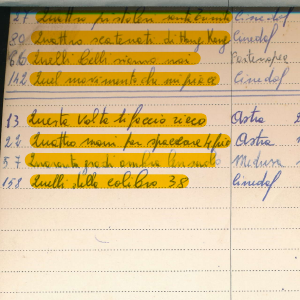 27 Quattro pistoleri santa Cinedaf
30 Quattro scatenati di Hong Kong Cinedaf
66 Quelli belli siamo noi Partenopea
142 Quel movimento che mi piace Cinedaf
13 Questa volta ti faccio ricco Astra
22 Quattro mani per spaccare tifio Astra
57 Quaranta gradi all'ombra del Medusa
158 Quelli della calibro 38 Cinedaf